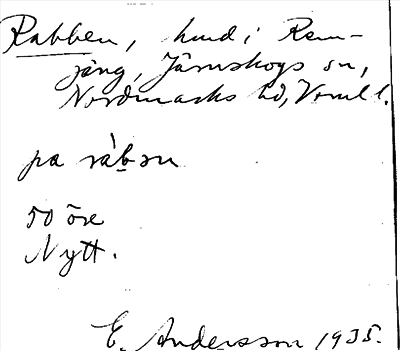 Rabben, hmd i Rem-
jäng, Järnskogs sn,
Nordmarks hd, Vrml l.
pa ràb̲ən
50 öre
Nytt.
E. Andersson 1935.